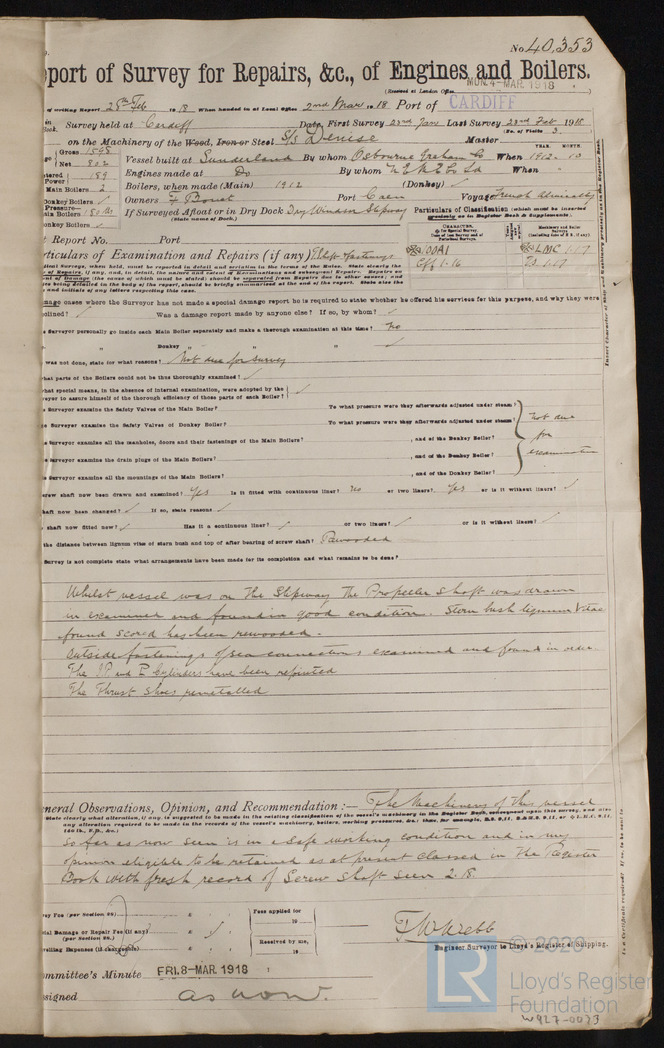 No. 40,353
port of Survey for Repairs, &c., of Engines and Boilers.
(Received at London Office
MON. 4-MAR. 1918
of writing Report 28th Feb 1918 When handed in at Local Office 2nd Mar 1918 Port of CARDIFF
Survey held at Cardiff Date, First Survey 23rd Jan Last Survey 23rd Feb 1918
(No. of Visits 3.)
on the Machinery of the Wood, Iron or Steel S/S Denise Master
Gross 1595
Net 802
Vessel built at Sunderland By whom Osbourne Graham Co When 1912. 10
YEAR. MONTH.
Power 159
Engines made at Do By whom N.E.M.E. Co Ld When
Main Boilers 2
Boilers, when made (Main) 1912 (Donkey) ✓
Donkey Boilers ✓
Owners Port Caen Voyage French Admiralty
Pressure—
Main Boilers 180 lbs
Donkey Boilers ✓
If Surveyed Afloat or in Dry Dock Slipway
(State name of Dock.)
Particulars of Classification (which must be inserted precisely as in Register Book & Supplements):
100A1 LMC 1-17
1-16 1-17
Report No. Port
rticulars of Examination and Repairs (if any) fastenings
mage cases where the Surveyor has not made a special damage report he is required to state whether he offered his services for this purpose, and why they were
clined? ✓ Was a damage report made by anyone else? If so, by whom? ✓
Surveyor personally go inside each Main Boiler separately and make a thorough examination at this time? No
" Donkey " " " ✓
was not done, state for what reasons? Not due for survey
hat parts of the Boilers could not be thus thoroughly examined? ✓
hat special means, in the absence of internal examination, were adopted by the
veyor to assure himself of the thorough efficiency of those parts of each Boiler? ✓
Surveyor examine the Safety Valves of the Main Boiler? To what pressure were they afterwards adjusted under steam?
Surveyor examine the Safety Valves of Donkey Boiler? To what pressure were they afterwards adjusted under steam?
Surveyor examine all the manholes, doors and their fastenings of the Main Boilers? , and of the Donkey Boiler?
Surveyor examine the drain plugs of the Main Boilers? , and of the Donkey Boiler?
Surveyor examine all the mountings of the Main Boilers? , and of the Donkey Boiler?
not due
for
examination
crew shaft now been drawn and examined? Yes Is it fitted with continuous liner? No or two liners? Yes or is it without liners? ✓
haft now been changed? ✓ If so, state reasons ✓
shaft now fitted new? ✓ Has it a continuous liner? ✓ or two liners? ✓ or is it without liners? ✓
the distance between lignum vitæ of stern bush and top of after bearing of screw shaft? Rewooded
Survey is not complete state what arrangements have been made for its completion and what remains to be done?
Whilst vessel was on the Slipway the Propeller shaft was drawn
in examined and found in good condition. Stern bush lignum vitae
found scored has been rewooded.
Outside fastenings of sea connections examined and found in order.
The I.P. and L. Cylinders have been rejointed
The Thrust Shoes remetalled
neral Observations, Opinion, and Recommendation :— The Machinery of this vessel
(State clearly what alteration, if any is suggested to be made in the existing classification of the vessel's machinery in the Register Book, consequent upon this survey, and also
any alteration required to be made in the records of the vessel's machinery, boilers, working pressures, &c.
so far as now seen is in a safe working condition and in my
opinion eligible to be retained as at present classed in the Register
Book with fresh record of Screw Shaft seen 2.18
vey Fee (per Section 28) £ : :
Fees applied for
19
ial Damage or Repair Fee (if any) £ : :
(per Section 28.)
Received by me,
velling Expenses (if chargeable) £ : :
19
F. W. Webb
Engineer Surveyor to Lloyd's Register of Shipping.
ommittee's Minute FRI. 8-MAR. 1918
ssigned as now.
© 2020
LR
Lloyd's Register
Foundation
W927-0073